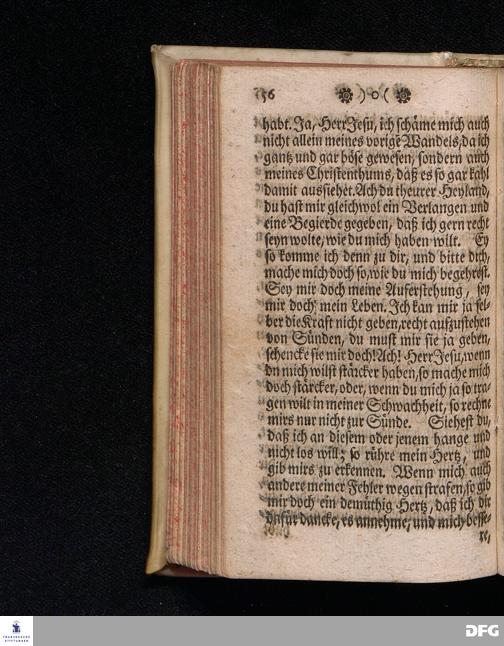 56 ) o (
habt. Ja, Herr Jesu, ich schäme mich auch
nicht allein meines vorigē Wandels, da ich
gantz und gar böse gewesen, sondern auch
meines Christenthums, daß es so gar kahl
damit aussiehet. Ach du theurer Heyland,
du hast mir gleichwol ein Verlangen und
eine Begierde gegeben, daß ich gern recht
seyn wolte, wie du mich haben wilt. Ey
so komme ich denn zu dir, und bitte dich,
mache mich doch so, wie du mich begehrest.
Sey mir doch meine Auferstehung, sey
mir doch mein Leben. Ich kan mir ja sel-
ber die Kraft nicht geben, recht aufzustehen
von Sünden, du must mir sie ja geben,
schencke sie mir doch! Ach! Herr Jesu, wenn
du mich wilst stärcker haben, so mache mich
doch stärcker, oder, wenn du mich ja so tra-
gen wilt in meiner Schwachheit, so rechne
mirs nur nicht zur Sünde. Siehest du,
daß ich an diesem oder jenem hange und
nicht los will; so rühre mein Hertz, und
gib mirs zu erkennen. Wenn mich auch
andere meiner Fehler wegen strafen, so gib
mir doch ein demüthig Hertz, daß ich dir
dafür dancke, es annehme, und mich besse-
re,
FRANCKESCHE
STIFTUNGEN
DFG